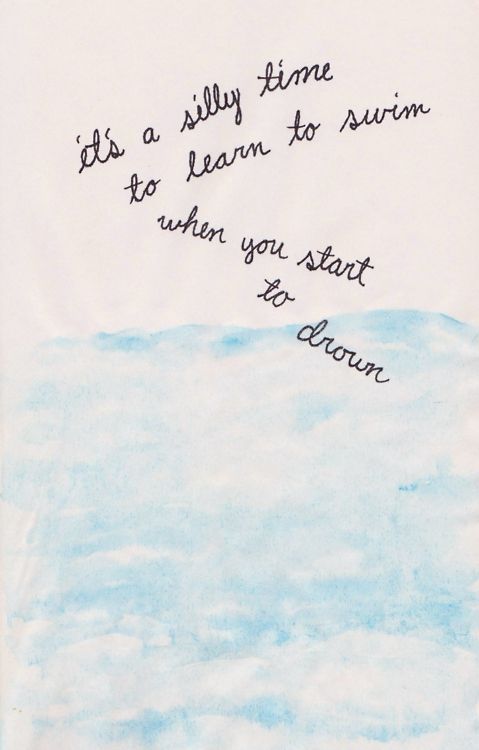 it's a silly time
to learn to swim
when you start
to
drown